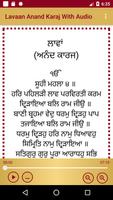 Lavaan Anand Karaj With Audio
ਲਾਵਾਂ
(ਅਨੰਦ ਕਾਰਜ)
ੴ
ਸੂਹੀ ਮਹਲਾ ੪ ॥
ਹਰਿ ਪਹਿਲੜੀ ਲਾਵ ਪਰਵਿਰਤੀ ਕਰਮ
ਦ੍ਰਿੜਾਇਆ ਬਲਿ ਰਾਮ ਜੀਉ ॥
ਬਾਣੀ ਬ੍ਰਹਮਾ ਵੇਦੁ ਧਰਮੁ ਦ੍ਰਿੜਹੁ ਪਾਪ
ਤਜਾਇਆ ਬਲਿ ਰਾਮ ਜੀਉ ॥
ਧਰਮੁ ਦ੍ਰਿੜਹੁ ਹਰਿ ਨਾਮੁ ਧਿਆਵਹੁ
ਸਿਮ੍ਰਿਤਿ ਨਾਮੁ ਦ੍ਰਿੜਾਇਆ ॥
ਸਤਿਗੁਰੁ ਗੁਰੁ ਪੂਰਾ ਆਰਾਧਹੁ ਸਭਿ